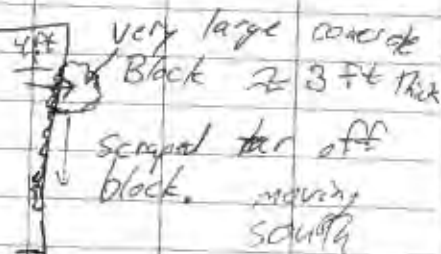 4ft
very large concrete
Block ≈ 3 ft thick
scraped tar off
block. moving
south